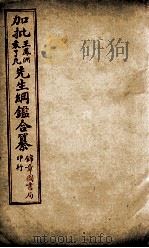 加批王鳳洲袁了凡先生綱鑑合纂
錦章圖書局
印行